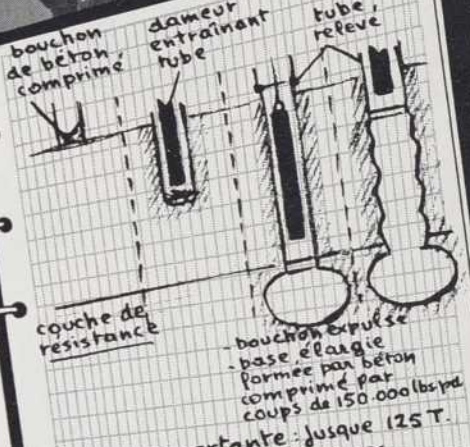 bouchon
de béton
comprimé
dameur
entraînant
tube
tube,
relevé
couche de
résistance
- bouchon expulsé
- base élargie
formée par béton
comprimé par
coups de 150.000 lbs pd
: jusque 125 T.